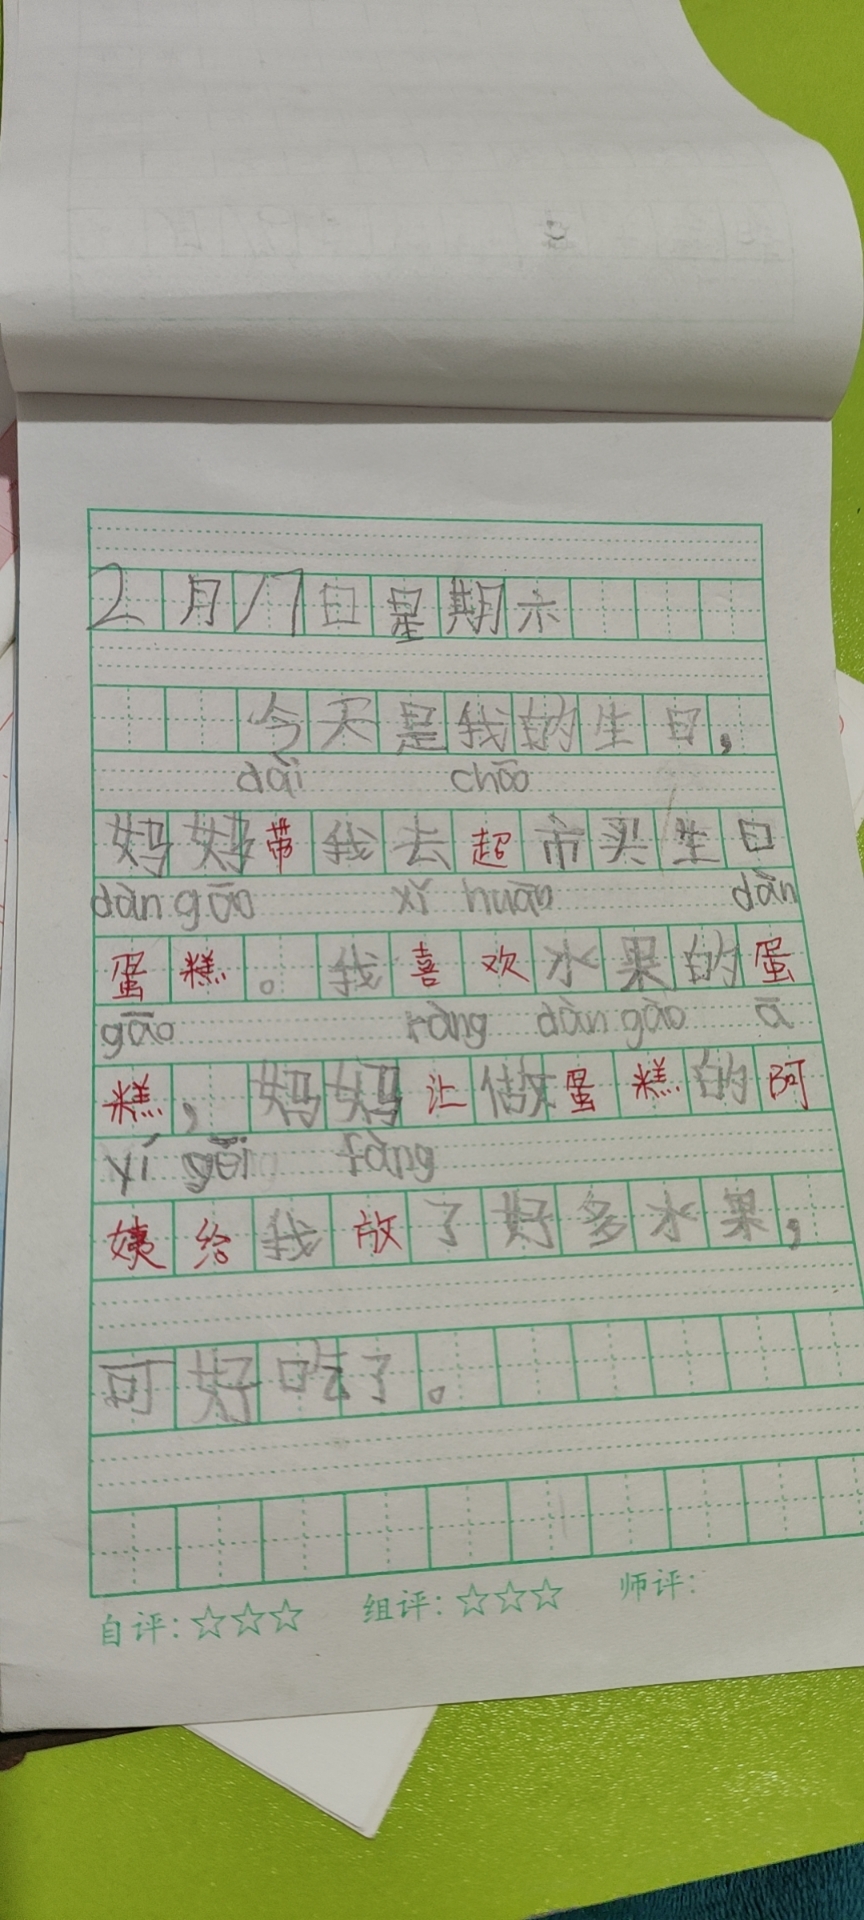 2月17日星期六
今天是我的生日，
dài chāo
妈妈带我去超市买生日
dàn gāo xǐ huān dàn
蛋糕。我喜欢水果的蛋
gāo ràng dàn gāo ā
糕，妈妈让做蛋糕的阿
yí gěi fàng
姨给我放了好多水果，
可好吃了。
自评：☆☆☆ 组评：☆☆☆ 师评：